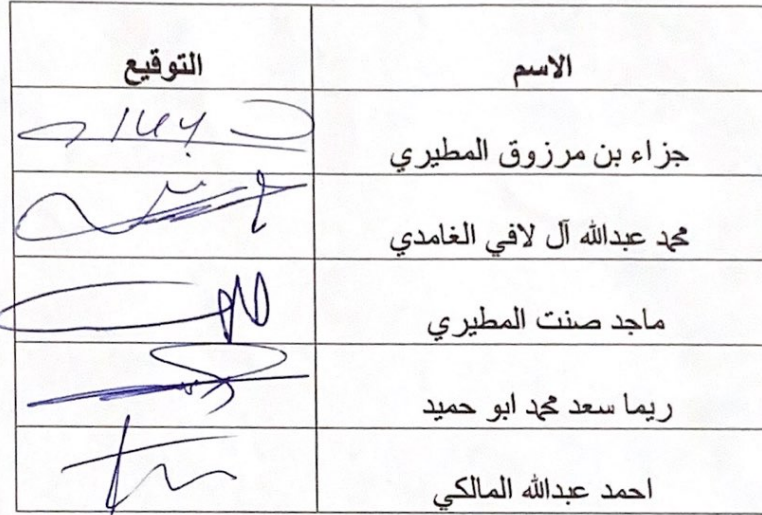 الاسم التوقيع
جزاء بن مرزوق المطيري
محمد عبدالله آل لافي الغامدي
ماجد صنت المطيري
ريما سعد محمد ابو حميد
احمد عبدالله المالكي